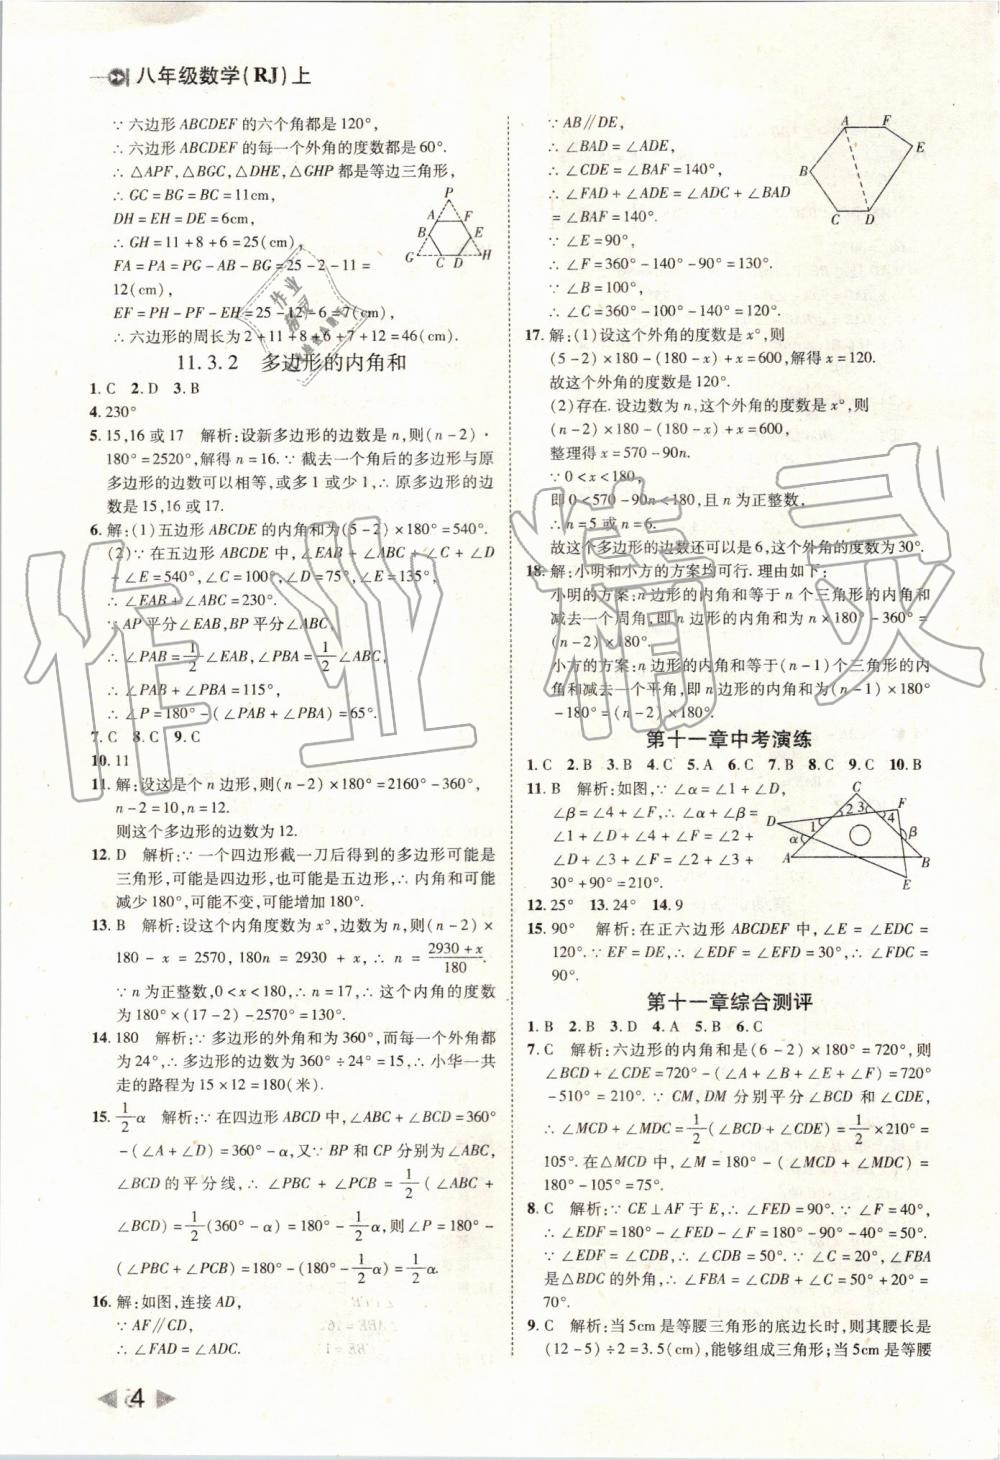 八年级数学(RJ)上
∵六边形ABCDEF的六个角都是120°,
∴六边形ABCDEF的每一个外角的度数都是60°.
∴△APF,△BGC,△DHE,△GHP都是等边三角形,
∴GC=BG=BC=11cm,
DH=EH=DE=6cm,
∴GH=11+8+6=25(cm),
FA=PA=PG-AB-BG=25-2-11=
12(cm),
EF=PH-PF-EH=25-12-6=7(cm).
∴六边形的周长为2+11+8+6+7+12=46(cm).
11.3.2 多边形的内角和
1. C 2. D 3. B
4. 230°
5. 15,16或17 解析:设新多边形的边数是n,则(n-2)·
180°=2520°,解得n=16.∵截去一个角后的多边形与原
多边形的边数可以相等,或多1或少1,∴原多边形的边
数是15,16或17.
6. 解:(1)五边形ABCDE的内角和为(5-2)×180°=540°.
(2)∵在五边形ABCDE中,∠EAB+∠ABC+∠C+∠D
+∠E=540°,∠C=100°,∠D=75°,∠E=135°,
∴∠EAB+∠ABC=230°.
∵AP平分∠EAB,BP平分∠ABC,
∴∠PAB=1/2∠EAB,∠PBA=1/2∠ABC,
∴∠PAB+∠PBA=115°,
∴∠P=180°-(∠PAB+∠PBA)=65°.
7. C 8. C 9. C
10. 11
11. 解:设这是个n边形,则(n-2)×180°=2160°-360°,
n-2=10,n=12.
则这个多边形的边数为12.
12. D 解析:∵一个四边形截一刀后得到的多边形可能是
三角形,可能是四边形,也可能是五边形,∴内角和可能
减少180°,可能不变,可能增加180°.
13. B 解析:设这个内角度数为x°,边数为n,则(n-2)×
180-x=2570,180n=2930+x,∴n=(2930+x)/180.
∵n为正整数,0<x<180,∴n=17,∴这个内角的度数
为180°×(17-2)-2570°=130°.
14. 180 解析:∵多边形的外角和为360°,而每一个外角
为24°,∴多边形的边数为360°÷24°=15,∴小华一共
走的路程为15×12=180(米).
15. 1/2α 解析:∵在四边形ABCD中,∠ABC+∠BCD=360°
-(∠A+∠D)=360°-α,又∵BP和CP分别为∠ABC,
∠BCD的平分线,∴∠PBC+∠PCB=1/2(∠ABC+
∠BCD)=1/2(360°-α)=180°-1/2α,则∠P=180°-
(∠PBC+∠PCB)=180°-(180°-1/2α)=1/2α.
16. 解:如图,连接AD,
∵AF∥CD,
∴∠FAD=∠ADC.
∵AB∥DE,
∴∠BAD=∠ADE,
∴∠CDE=∠BAF=140°,
∴∠FAD+∠ADE=∠ADC+∠BAD
=∠BAF=140°.
∵∠E=90°,
∴∠F=360°-140°-90°=130°.
∵∠B=100°,
∴∠C=360°-100°-140°=120°.
17. 解:(1)设这个外角的度数是x°,则
(5-2)×180-(180-x)+x=600,解得x=120.
故这个外角的度数是120°.
(2)存在.设边数为n,这个外角的度数是x°,则
(n-2)×180-(180-x)+x=600,
整理得x=570-90n.
∵0<x<180,
即0<570-90n<180,且n为正整数,
∴n=5或n=6.
故这个多边形的边数还可以是6,这个外角的度数为30°.
18. 解:小明和小方的方案均可行.理由如下:
小明的方案:n边形的内角和等于n个三角形的内角和
减去一个周角,即n边形的内角和为n×180°-360°=
(n-2)×180°.
小方的方案:n边形的内角和等于(n-1)个三角形的内
角和减去一个平角,即n边形的内角和为(n-1)×180°
-180°=(n-2)×180°.
第十一章中考演练
1. C 2. B 3. B 4. C 5. A 6. C 7. B 8. C 9. C 10. B
11. B 解析:如图,∵∠α=∠1+∠D,
∠β=∠4+∠F,∴∠α+∠β=
∠1+∠D+∠4+∠F=∠2+
∠D+∠3+∠F=∠2+∠3+
30°+90°=210°.
12. 25° 13. 24° 14. 9
15. 90° 解析:在正六边形ABCDEF中,∠E=∠EDC=
120°.∵EF=DE,∴∠EDF=∠EFD=30°,∴∠FDC=
90°.
第十一章综合测评
1. B 2. B 3. D 4. A 5. B 6. C
7. C 解析:六边形的内角和是(6-2)×180°=720°,则
∠BCD+∠CDE=720°-(∠A+∠B+∠E+∠F)=720°
-510°=210°.∵CM,DM分别平分∠BCD和∠CDE,
∴∠MCD+∠MDC=1/2(∠BCD+∠CDE)=1/2×210°=
105°.在△MCD中,∠M=180°-(∠MCD+∠MDC)=
180°-105°=75°.
8. C 解析:∵CE⊥AF于E,∴∠FED=90°.∵∠F=40°,
∴∠EDF=180°-∠FED-∠F=180°-90°-40°=50°.
∵∠EDF=∠CDB,∴∠CDB=50°.∵∠C=20°,∠FBA
是△BDC的外角,∴∠FBA=∠CDB+∠C=50°+20°=
70°.
9. C 解析:当5cm是等腰三角形的底边长时,则其腰长是
(12-5)÷2=3.5(cm),能够组成三角形;当5cm是等腰
4
作业精灵